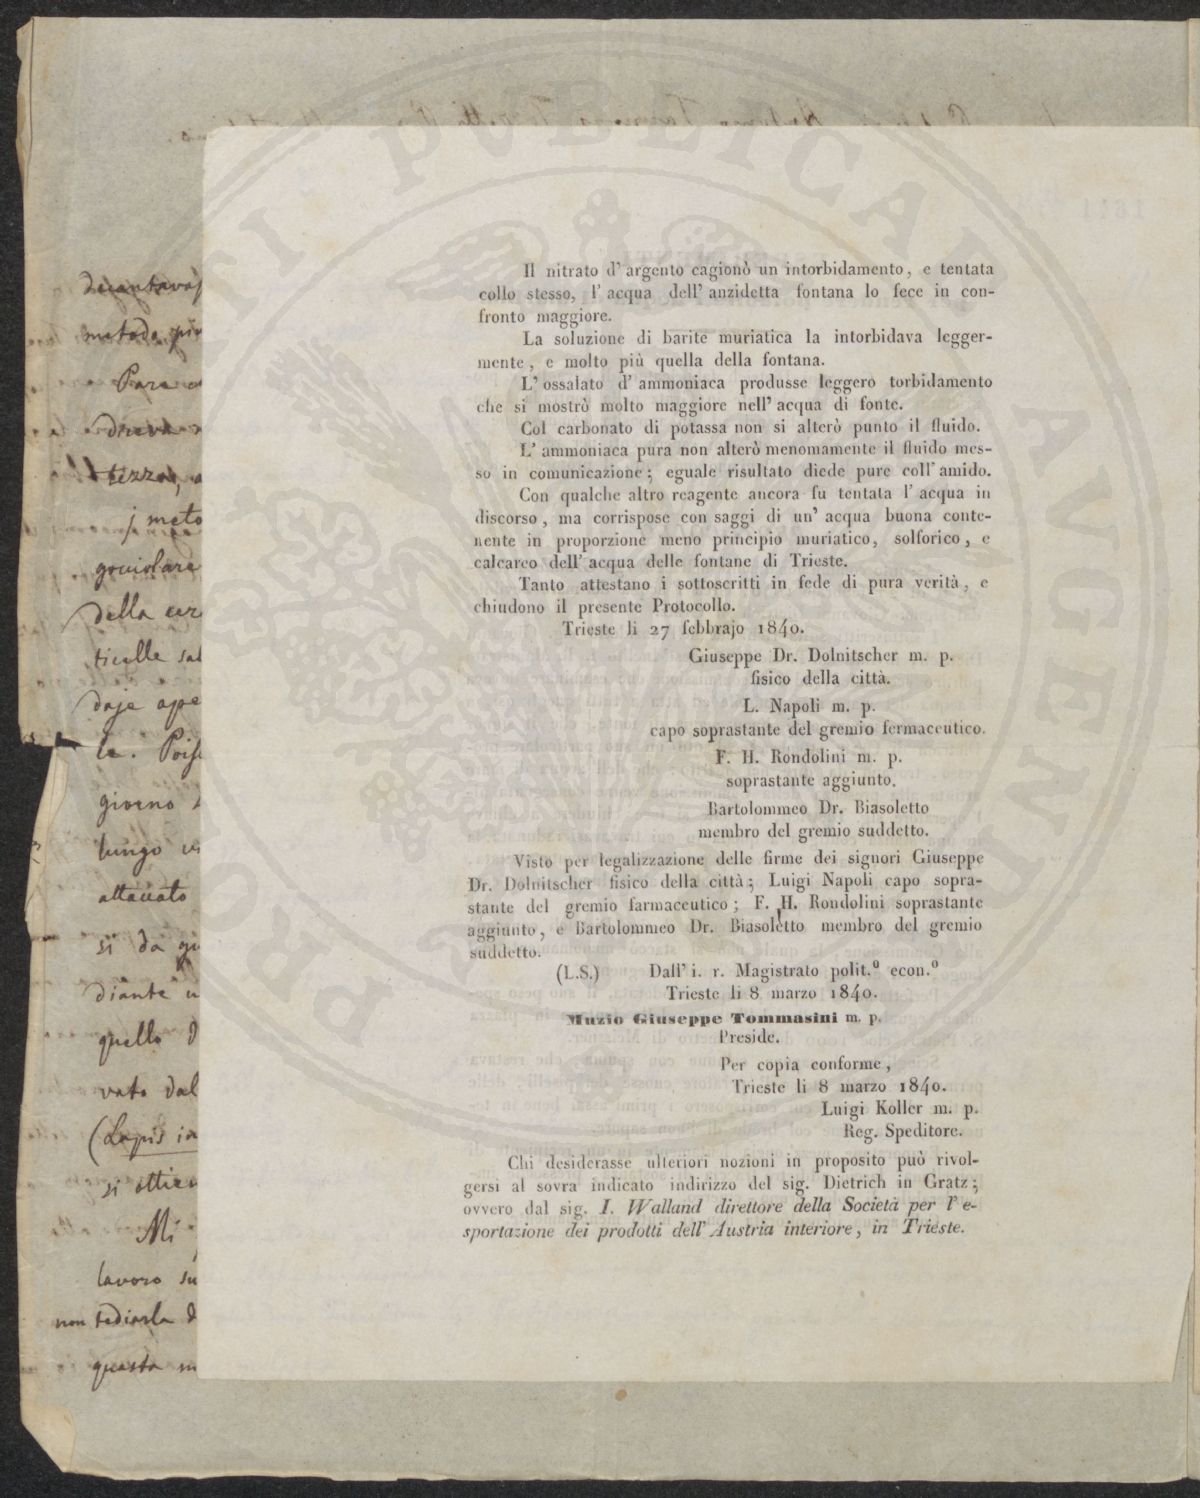 PROSPERITATI PVBLICAE AVGENDAE
decantavasi
Para
della
giorno
lungo
attaccato
si da
diante
quello
(Lapis
Mi
lavoro su
non tediarla
questa m
Il nitrato d' argento cagionò un intorbidamento, e tentata
collo stesso, l' acqua dell' anzidetta fontana lo fece in con-
fronto maggiore.
La soluzione di barite muriatica la intorbidava legger-
mente, e molto più quella della fontana.
L' ossalato d' ammoniaca produsse leggero torbidamento
che si mostrò molto maggiore nell' acqua di fonte.
Col carbonato di potassa non si alterò punto il fluido.
L' ammoniaca pura non alterò menomamente il fluido mes-
so in comunicazione; eguale risultato diede pure coll' amido.
Con qualche altro reagente ancora fu tentata l' acqua in
discorso, ma corrispose con saggi di un' acqua buona conte-
nente in proporzione meno principio muriatico, solforico, e
calcareo dell' acqua delle fontane di Trieste.
Tanto attestano i sottoscritti in fede di pura verità, e
chiudono il presente Protocollo.
Trieste li 27 febbrajo 1840.
Giuseppe Dr. Dolnitscher m. p.
fisico della città.
L. Napoli m. p.
capo soprastante del gremio fermaceutico.
F. H. Rondolini m. p.
soprastante aggiunto.
Bartolommeo Dr. Biasoletto
membro del gremio suddetto.
Visto per legalizzazione delle firme dei signori Giuseppe
Dr. Dolnitscher fisico della città; Luigi Napoli capo sopra-
stante del gremio farmaceutico; F. H. Rondolini soprastante
aggiunto, e Bartolommeo Dr. Biasoletto membro del gremio
suddetto.
(L.S.) Dall' i. r. Magistrato polit.º econ.º
Trieste li 8 marzo 1840.
Muzio Giuseppe Tommasini m. p.
Preside.
Per copia conforme,
Trieste li 8 marzo 1840.
Luigi Koller m. p.
Reg. Speditore.
Chi desiderasse ulteriori nozioni in proposito può rivol-
gersi al sovra indicato indirizzo del sig. Dietrich in Gratz;
ovvero dal sig. I. Walland direttore della Società per l' e-
sportazione dei prodotti dell' Austria interiore, in Trieste.